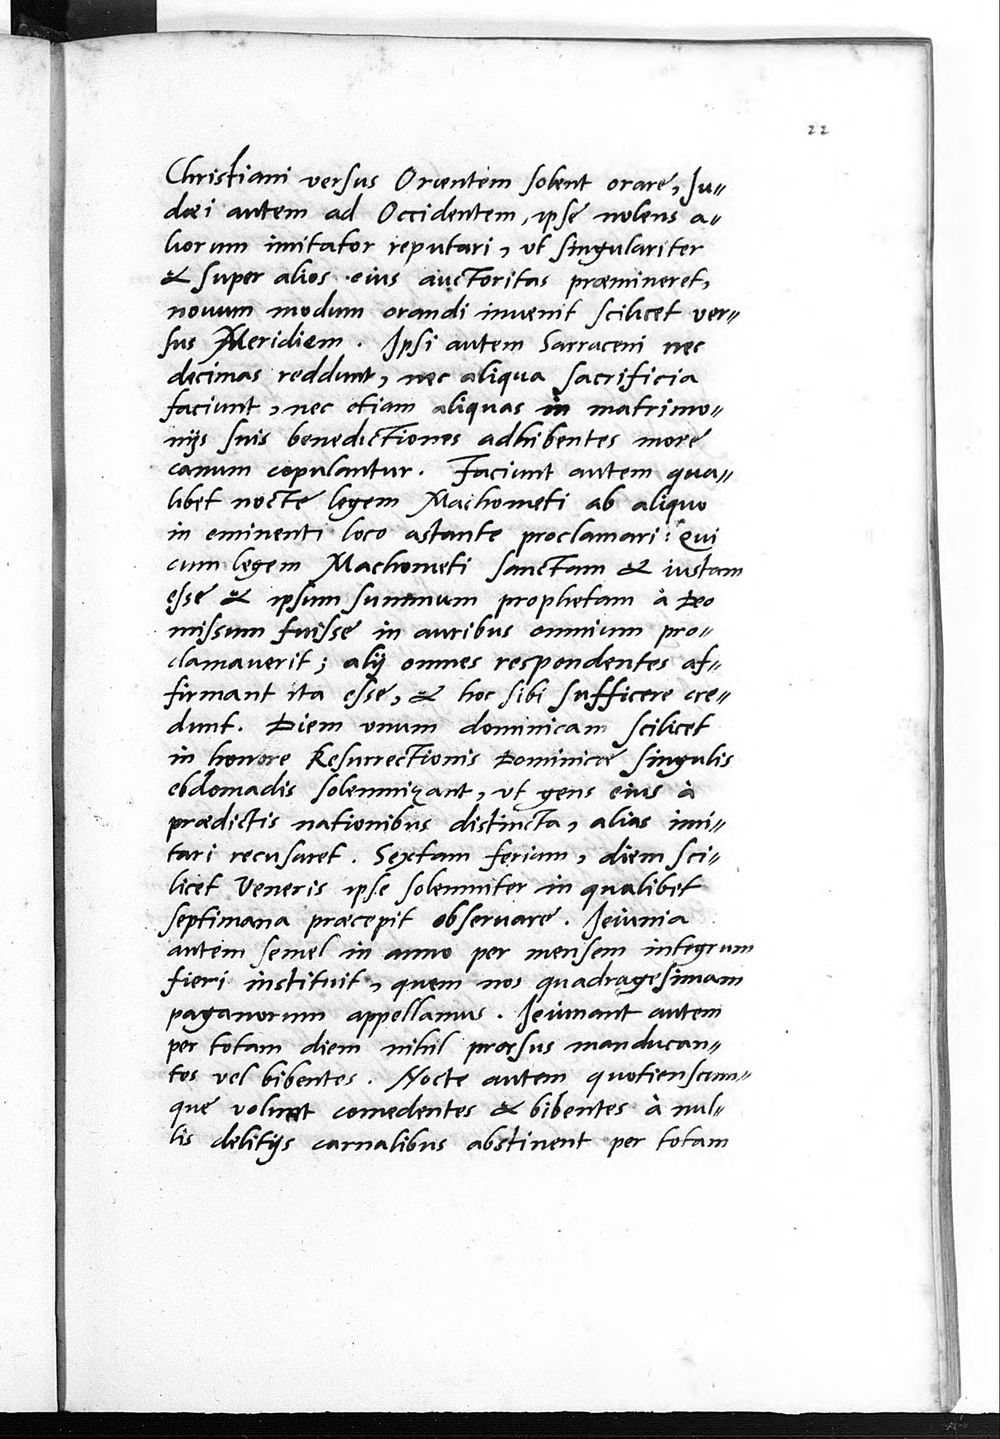 22
Christiani versus Orientem solent orare, Ju„
dæi autem ad Occidentem, ipse nolens a„
liorum imitator reputari, ut singulariter
& super alios eius auctoritas præmineret,
nouum modum orandi inuenit scilicet ver„
sus Meridiem. Ipsi autem Sarraceni nec
decimas reddunt, nec aliqua sacrificia
faciunt, nec etiam aliquas in matrimo„
nijs suis benedictiones adhibentes more
canum copulantur. Faciunt autem qua„
libet nocte legem Machometi ab aliquo
in eminenti loco astante proclamari: Qui
cum legem Machometi sanctam & iustam
esse & ipsum summum prophetam à Deo
missum fuisse in auribus omnium pro„
clamauerit; alij omnes respondentes af„
firmant ita esse, & hoc sibi sufficere cre„
dunt. Diem unum dominicam scilicet
in honore Resurrectionis Dominicæ singulis
ebdomadis solemnizant, ut gens eius à
prædictis nationibus distincta, alias imi„
tari recusaret. Sextam feriam, diem sci„
licet Veneris ipse solemniter in qualibet
septimana præcepit obseruare. Ieiunia
autem semel in anno per mensem integrum
fieri instituit, quem nos quadragesimam
paganorum appellamus. Ieiunant autem
per totam diem nihil prorsus manducan„
tes vel bibentes. Nocte autem quotienscum„
que volunt comedentes & bibentes à nul„
lis delitijs carnalibus abstinent per totam